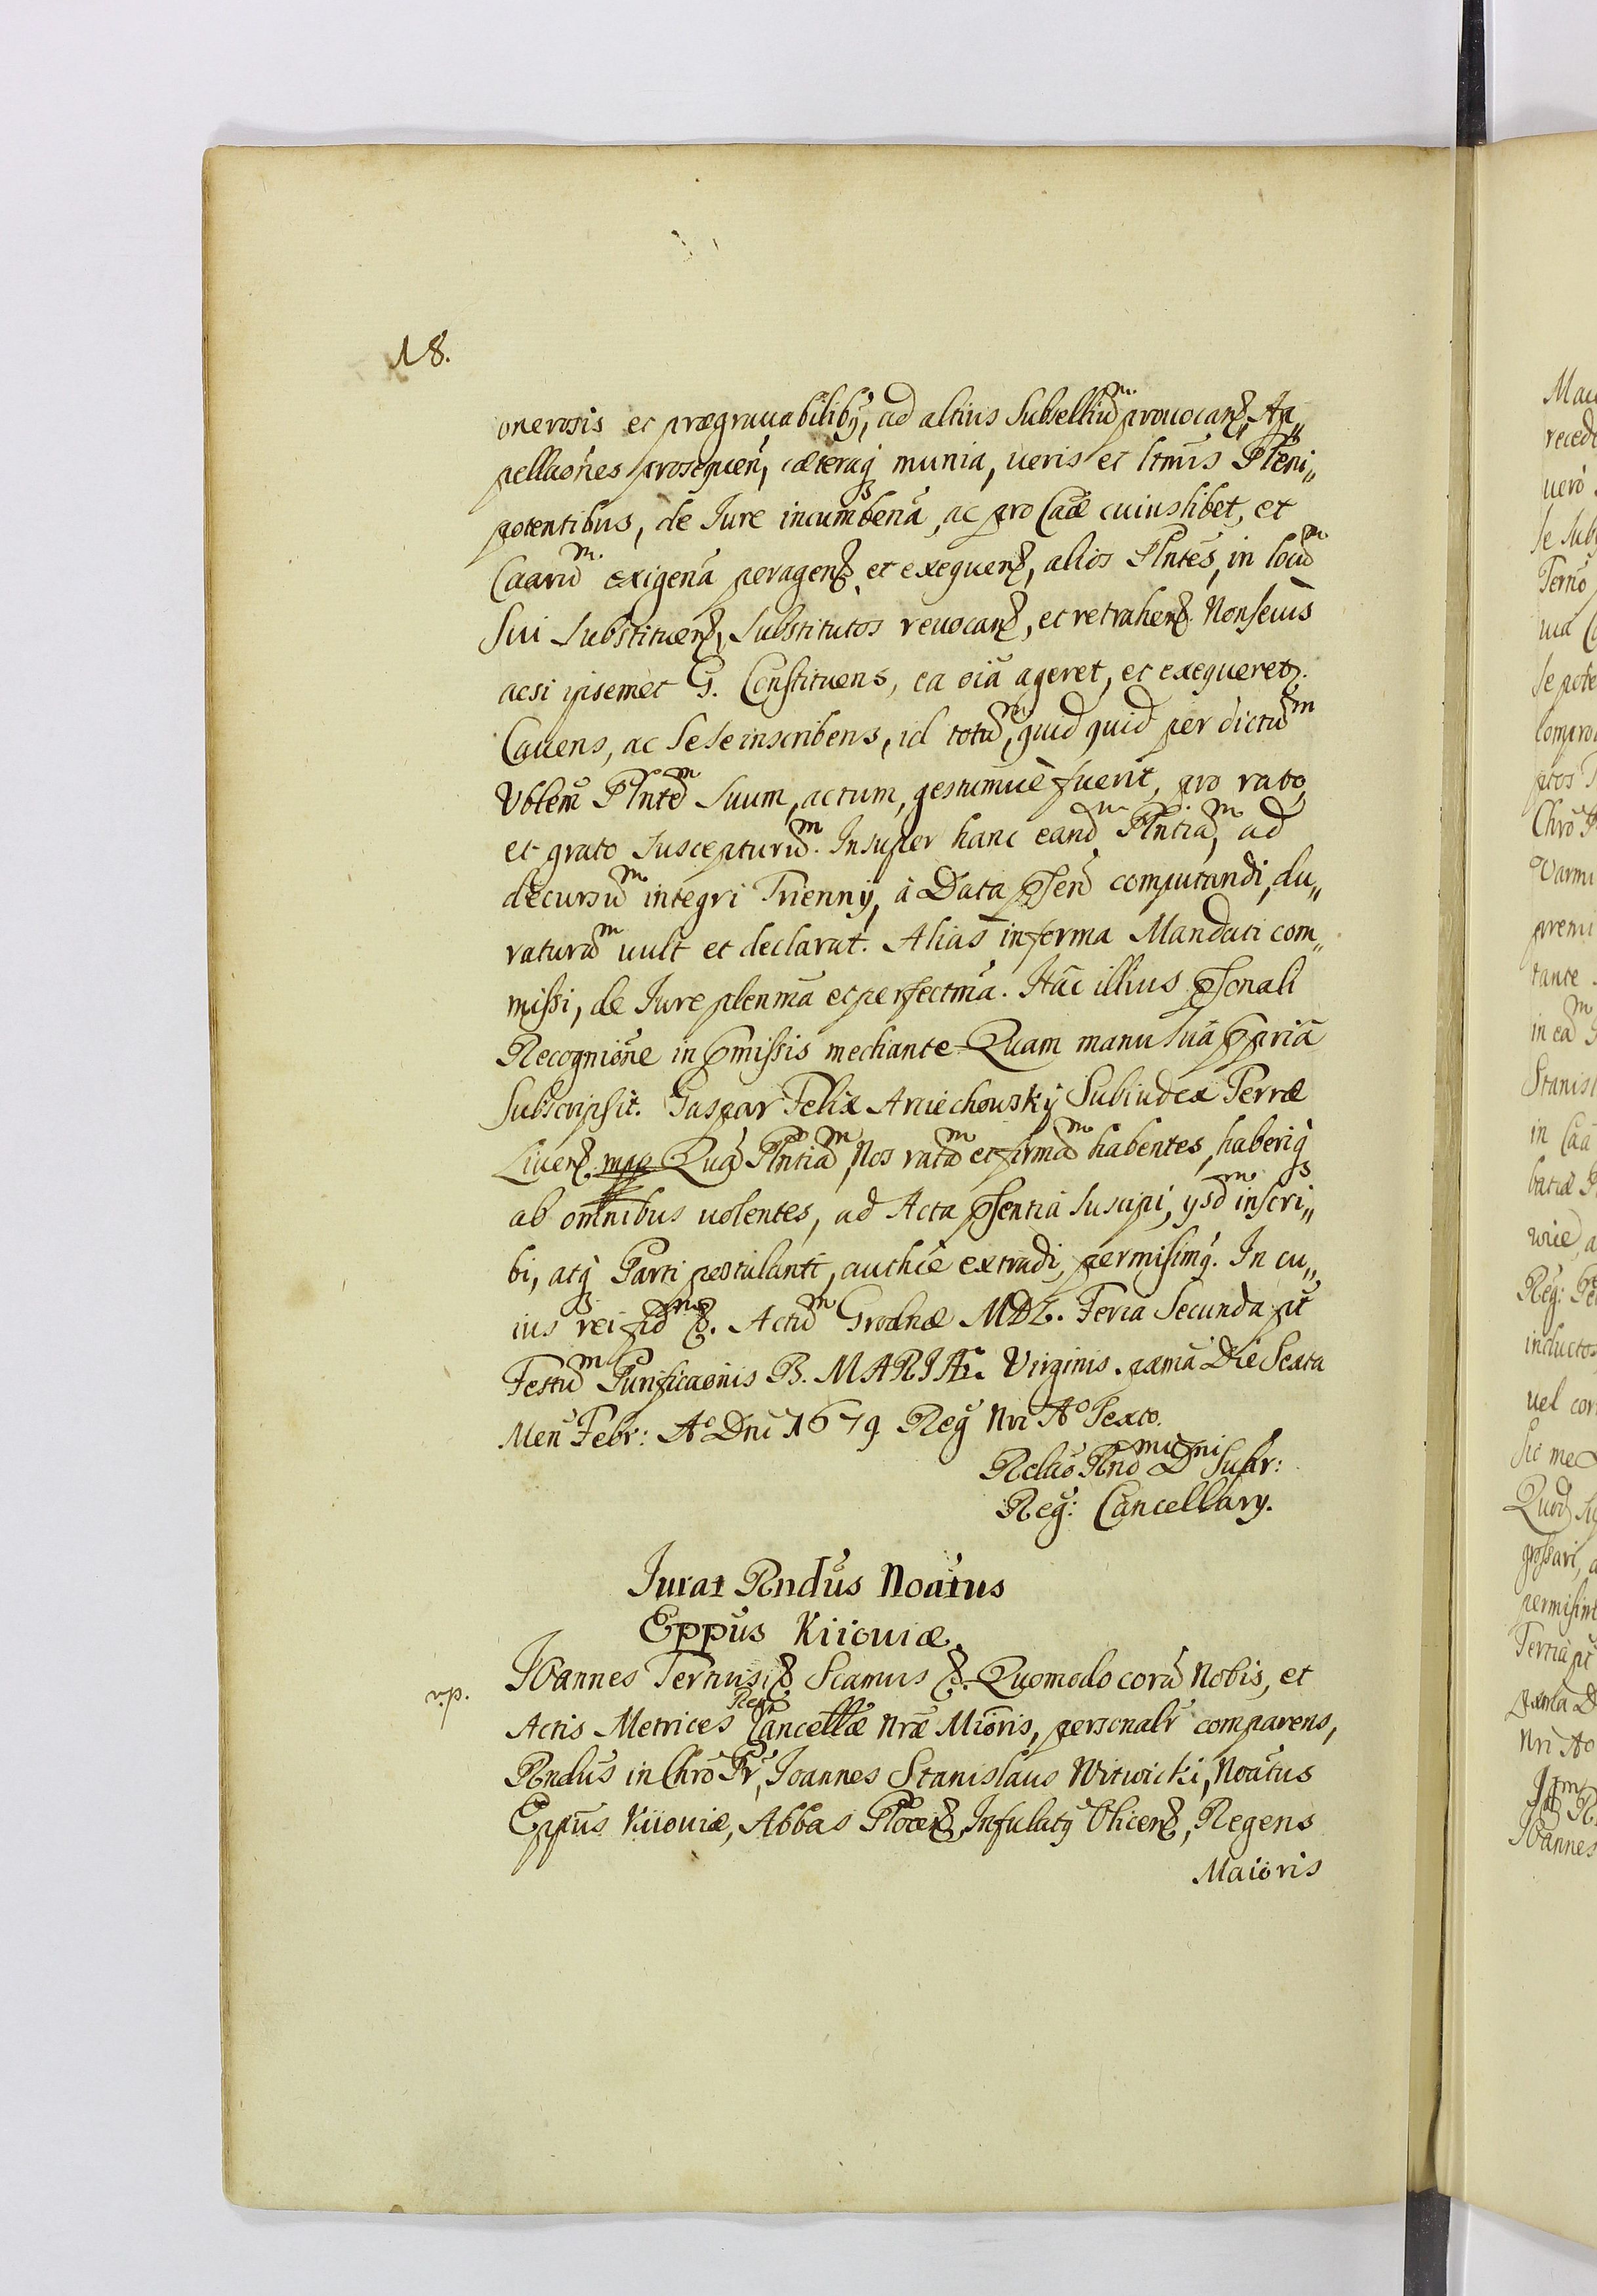 18.
onerosis et prægrauabilibꝫ, ad altius Subselliũᵐ prouocanꝭ, Ap„
pellaõnes prosequeñ, cæteraqꝫ munia, ueris et ltmis Pleni„
potentibus, de Iure incumbenã, ac pro Caæ cuiuslibet, et
Caarũᵐ exigenã peragenꝭ et exequenꝭ, alios Plntes, in locũᵐ
Sui Substituenꝭ, Substitutos reuocanꝭ, et retrahenꝭ. Nonsecus
acsi ipsemet G. Constituens, ea oiã ageret, et exequeretꝫ.
Cauens, ac Sese inscribens, id totũᵐ, quid quid per dictũᵐ
Vblem Plntẽᵐ Suum, actum, gestumuè fuerit, pro rato
et grato Suscepturũᵐ. Insuper hanc eandᵐ Plntiãᵐ, ad
decursũᵐ integri Triennÿ, à Data p̃senꝭ computandi, du„
raturãᵐ uult et declarat. Alias in forma Mandati com„
missi, de Iure plenmã et perfectmã. Hãc illius p̃sonali
Recogniõne in p̃missis mediante. Quam manu Suã p̃priã
Subscripsit. Gaspar Felix Arciechowskÿ Subiudex Terræ
Liuenꝭ. mpp Quã Plntiãᵐ, Nos ratãᵐ et firmãᵐ habentes, haberiqꝫ
ab omnibus uolentes, ad Acta p̃sentiã Suscipi, ysdᵐ inscri„
bi, atqꝫ Parti postulanti, authce extradi, permisimꝰ. In cu„
ius rei fidᵐ ꝭ. Actũᵐ Grodnæ MDL. Feria Secunda pt̃
Festũᵐ Purificaõnis B. MARIÆ. Virginis. pxmã Die Sexta
Men Febr: Aº Dni 1679 Reg̃ Nri Aº Sexto.
Relaõ Rndᵐⁱ Dⁿⁱ Supr:
Reg̃: Cancellarÿ.
Iurat Rndus Noãtus
Eppus Kiiouiæ.
v.p.
IOannes Tertius ꝭ Scamus ꝭ. Quomodo corã Nobis, et
Actis Metrices Regꝭ Cancellæ nræ Mioris, personalr comparens,
Rndus in Chrõ Pr, Ioannes Stanislaus Witwicki, Noãtus
Eppus Kiiouiæ, Abbas Plocenꝭ, Infulatꝰ Olicenꝭ, Regens
Maioris